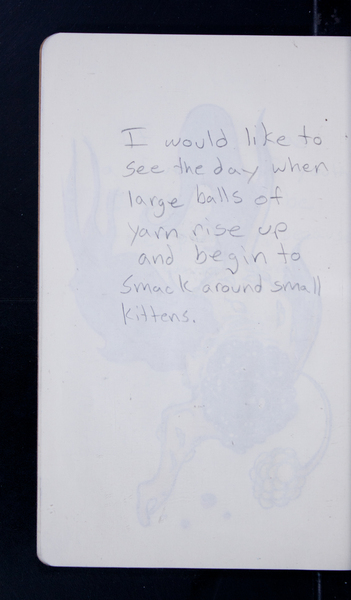 I would like to
see the day when
large balls of
yarn rise up
and begin to
smack around small
kittens.